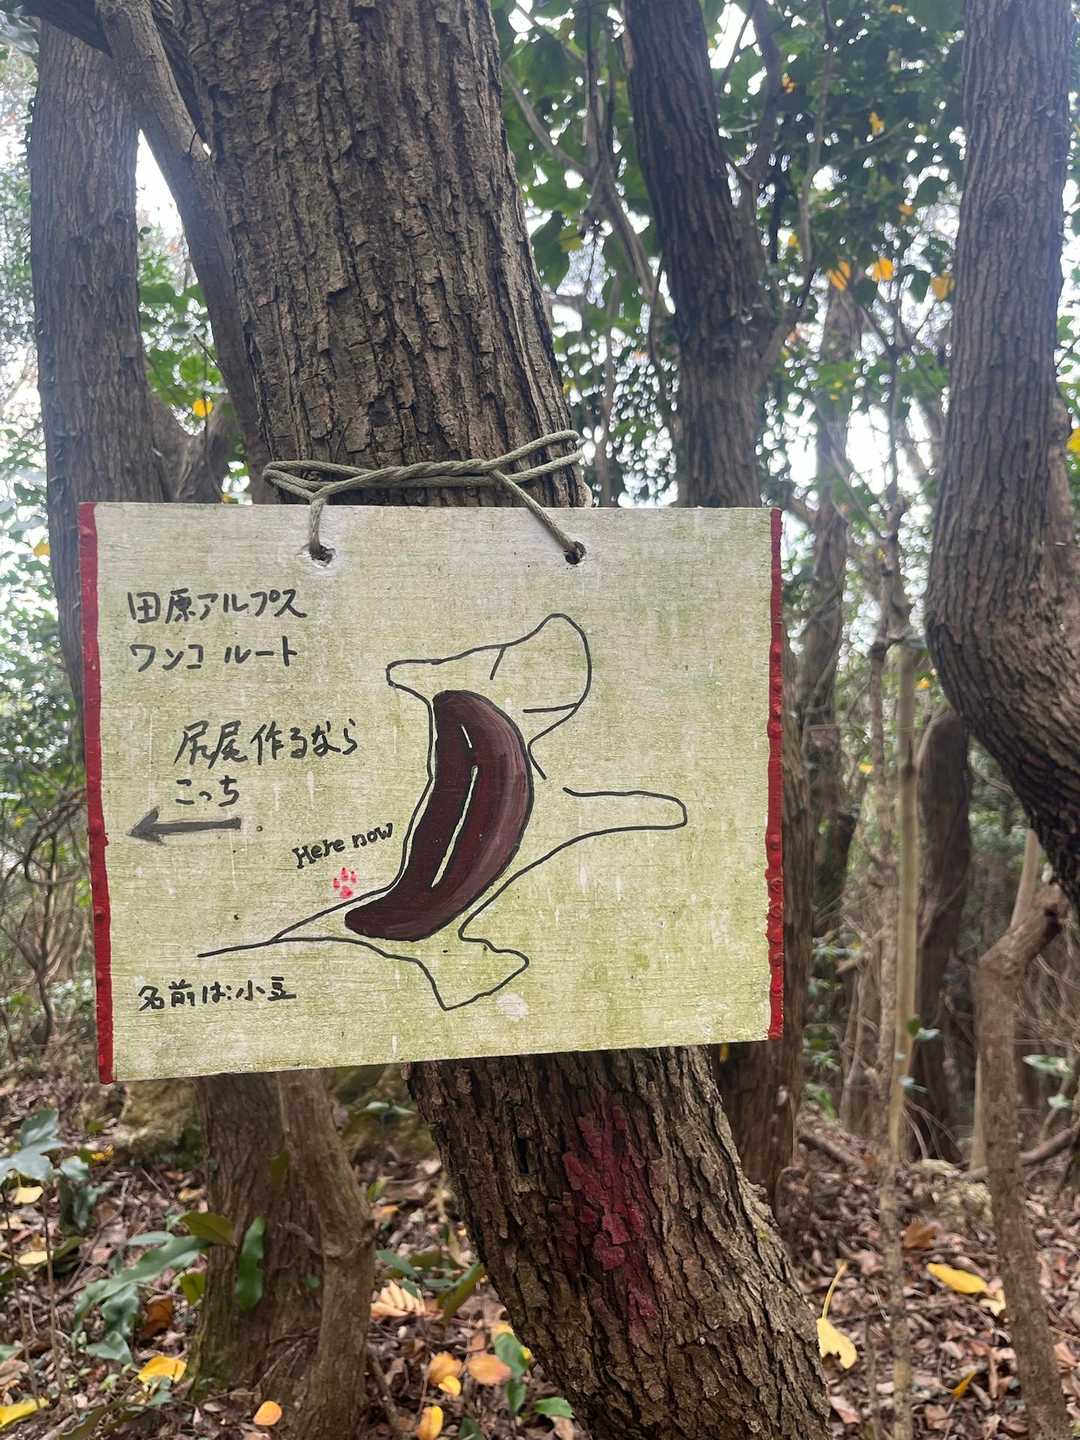 田原アルプス
ワンコ ルート
尻尾作るなら
こっち
Here now
名前は:小豆